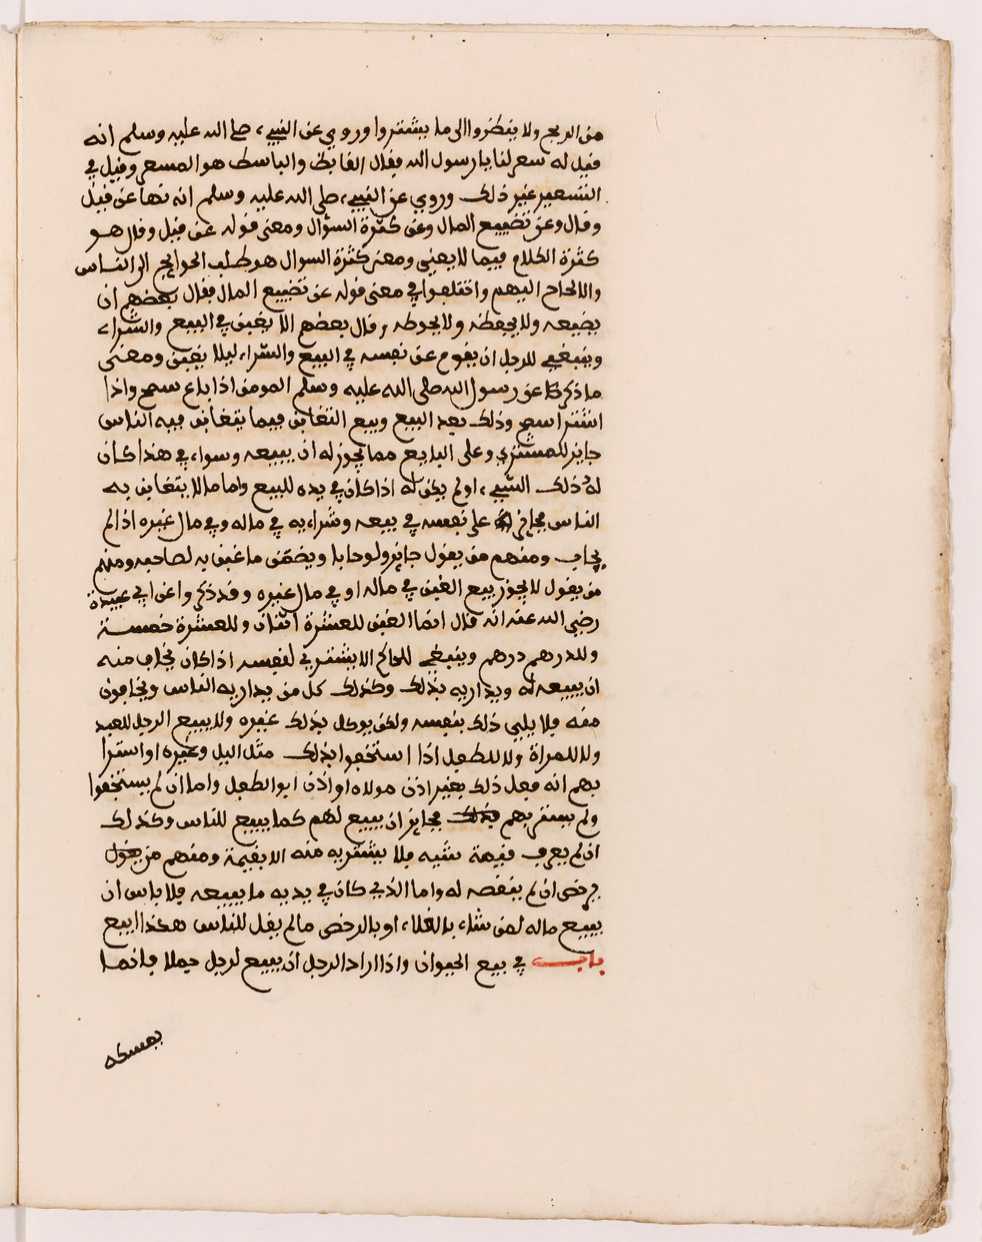 من الربح ولا ينظروا الى ما يشتروا وروي عن النبيء صلى الله عليه وسلم انه
قيل له سعر لنا يا رسول الله فقال القابض والباسط هو المسعر وقيل في
التسعير غير ذلك وروي عن النبيء صلى الله عليه وسلم انه نها عن قيل
وقال وعن تضييع المال وعن كثرة السؤال ومعنى قوله عن قيل وقال هو
كثرة الكلام فيما لا يعني ومعنى كثرة السوال هو طلب الحوايج الى الناس
والالحاح اليهم واختلفوا في معنى قوله عن تضييع المال فقال بعضهم ان
يضيعه ولا يحفظه ولا يحوطه وقال بعضهم الا يغبن في البيع والشراء
وينبغي للرجل ان يقوم عن نفسه في البيع والشراء ليلا يغبن ومعنى
ما ذكر عن رسول الله صلى الله عليه وسلم المومن اذا باع سمح واذا
اشترا سمح وذلك بعد البيع وبيع التغابن فيما يتغابن فيه الناس
جايز للمشتري وعلى البايع مما يجوز له ان يبيعه وسواء في هذا كان
له ذلك الشيء او لم يكن له اذا كان في يده للبيع واما ما لا يتغابن به
الناس فجايز على نفسه في بيعه وشراءه في ماله وفي مال غيره اذا لم
يحاب ومنهم من يقول جايز ولو حابا ويضمن ما غبن به لصاحبه ومنهم
من يقول لا يجوز بيع الغبن في ماله او في مال غيره وقد ذكروا عن ابي عبيدة
رضي الله عنه انه قال انما الغبن للعشرة اثنان وللعشرة خمسة
وللدرهم درهم وينبغي للحاكم الا يشتري لنفسه اذا كان يخاف منه
ان يبيعه له ويداريه بذلك وكذلك كل من يداريه الناس ويخافون
منه فلا يلي ذلك بنفسه ولكن يوكل بذلك غيره ولا يبيع الرجل للعبد
ولا للمراة ولا للطفل اذا استخفوا بذلك مثل اليل وغيره او استرا
بهم انه فعل ذلك بغير اذن مولاه او اذن ابو الطفل واما ان لم يستخفوا
ولم يستر بهم فجايز ان يبيع لهم كما يبيع للناس وكذلك
ان لم يعرف قيمة شيه فلا يشتريه منه الا بقيمة ومنهم من يقول
يرخص ان لم ينقصه له واما الذي كان في يديه ما يبيعه فلا باس ان
يبيع ماله لمن شاء بالغلاء او بالرخص ما لم يقل للناس هكذا ابيع
باب في بيع الحيوان واذا اراد الرجل ان يبيع لرجل جملا فانما
يمسكه